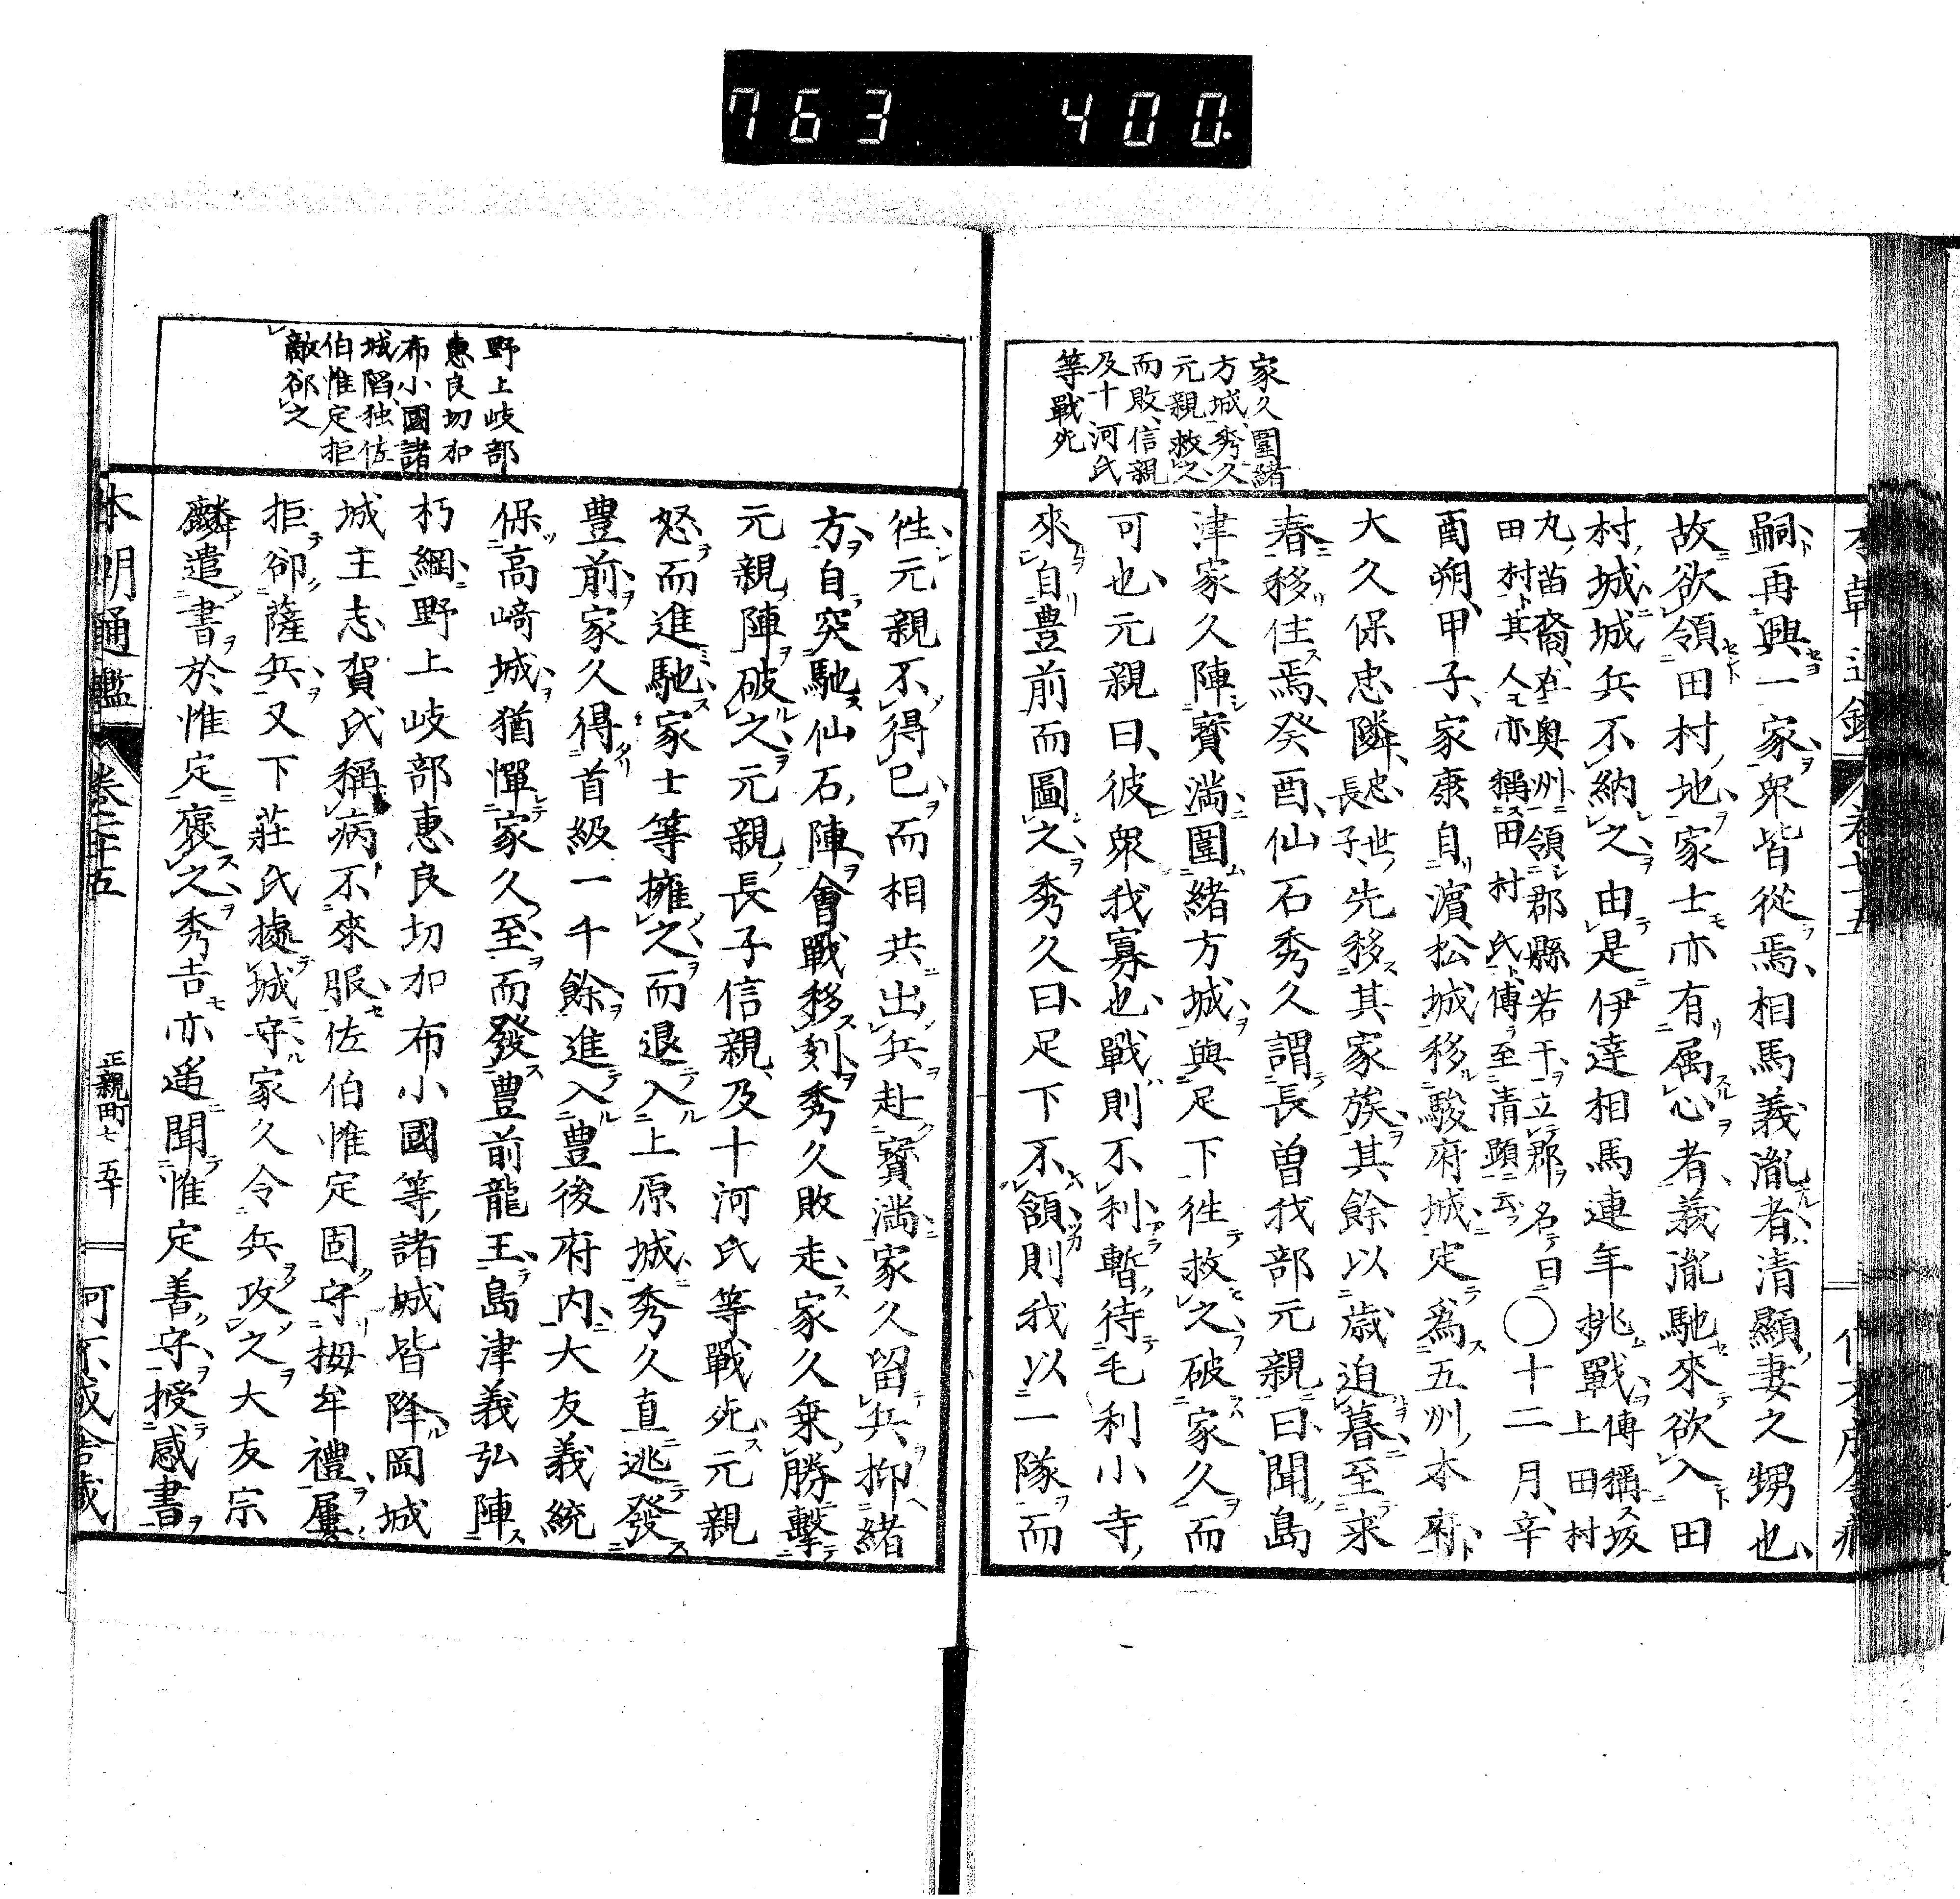 763 400
家久圍緒
方城、秀久
元親救之、
而敗、信親
及十河氏
等戰死
嗣再興一家衆皆從焉、相馬義胤者、清顯妻之甥也、
故欲領田村地、家士亦有属心者、義胤馳來欲入田
村城、城兵不納之、由是伊達相馬連年挑戰、傳稱坂上田村
丸苗裔、在奥州領郡縣若干、立郡名曰
田村、其人亦稱田村氏、傳至清顯云
〇十二月、辛
酉朔、甲子、家康自濵松城移駿府城、定爲五州本府、
大久保忠隣、忠世長子、先移其家族、其餘以歳迫暮、至来
春移住焉、癸酉、仙石秀久謂長曽我部元親曰、聞島
津家久陣寳滿圍緒方城、與足下徃救之、破家久而
可也、元親曰、彼衆我寡也、戰則不利、暫待毛利小寺
來自豊前而圖之、秀久曰、足下不頷則我以一隊而
徃、元親不得已而相共出兵赴寳滿、家久留兵抑緒
方、自突馳仙石陣、會戰移刻、秀久敗走、家久乗勝撃
元親陣、破之、元親長子信親及十河氏等戰死、元親
怒而進馳、家士等擁之而退入上原城、秀久直逃發
豊前、家久得首級一千餘、進入豊後府内、大友義統
保高﨑城、猶憚家久至而發豊前龍王、島津義弘陣
朽綱、野上岐部惠良切加布小國等諸城皆降、岡城
城主志賀氏稱病不來服、佐伯惟定固守栂牟禮、屢
拒卻薩兵、又下莊氏據城守、家久令兵攻之、大友宗
麟遣書於惟定褒之、秀吉亦遥聞惟定善守、授感書
野上岐部
惠良切加
布小國諸
城陷、独佐
伯惟定拒
敵卻之
本朝通鑑 卷七十五 正親町七 五十